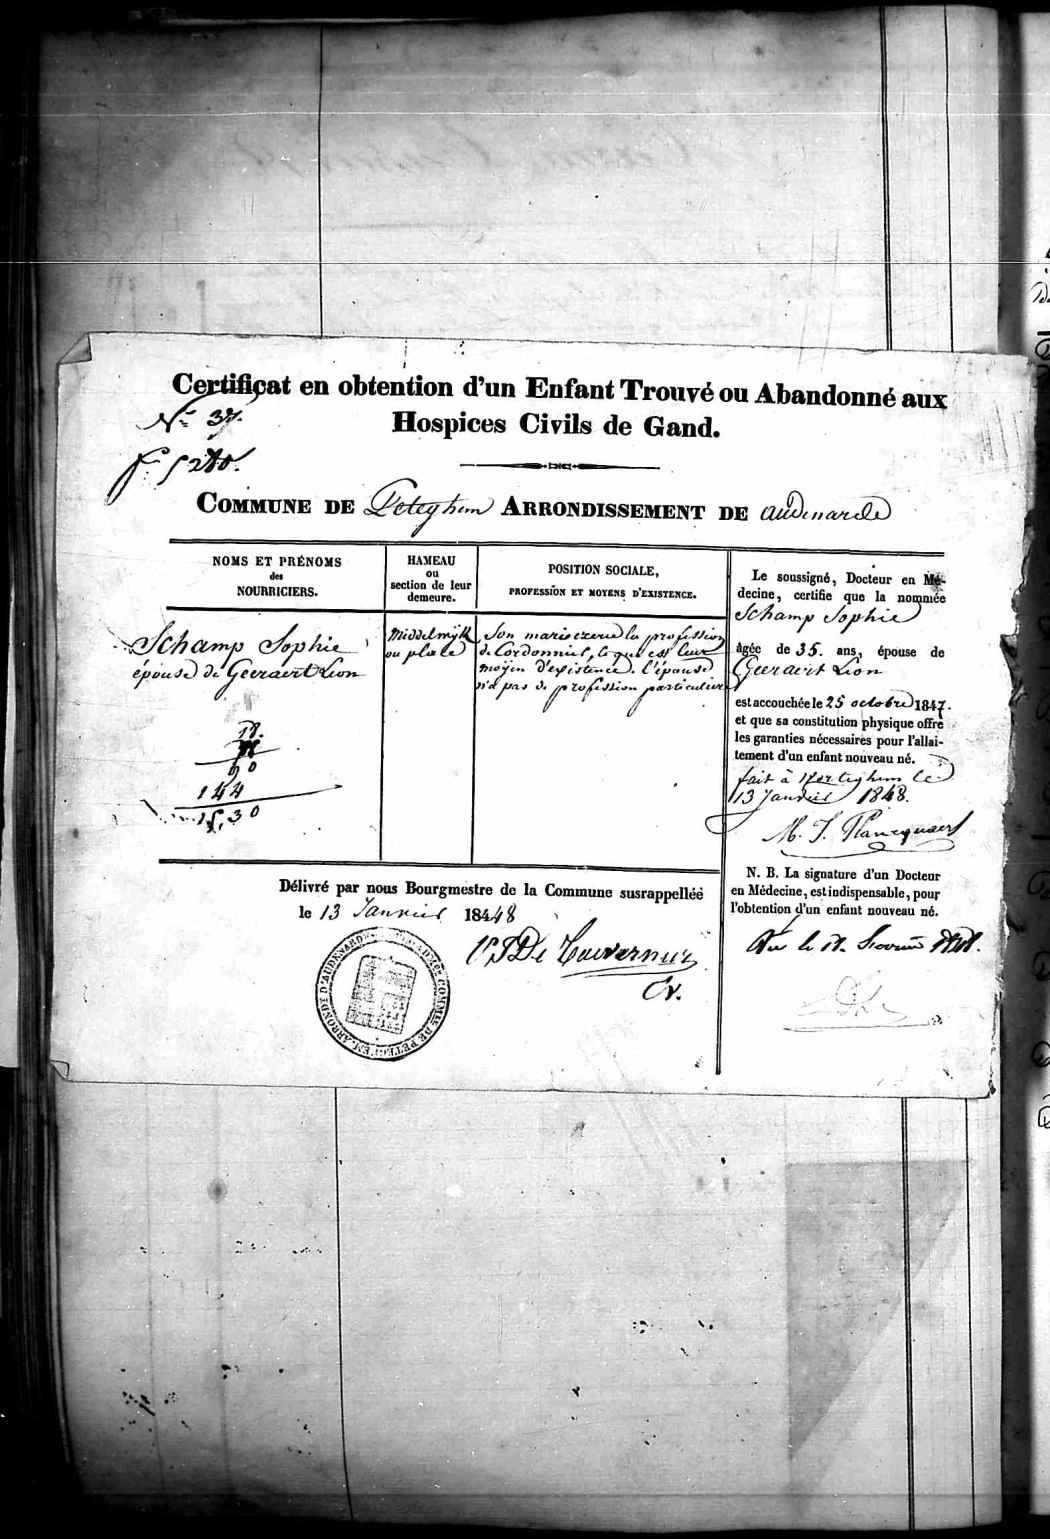 Certificat en obtention d'un Enfant Trouvé ou Abandonné aux
Hospices Civils de Gand.
N° 37.
f° 5280.
COMMUNE DE Peteghem ARRONDISSEMENT DE audenarde
NOMS ET PRÉNOMS
des
NOURRICIERS.
HAMEAU
ou
section de leur
demeure.
POSITION SOCIALE,
PROFESSION ET MOYENS D'EXISTENCE.
Schamp Sophie
épouse de Geeraert Léon
Middelwijk
ou place
Son mari exerce la profession
de Cordonnier, ce que est leur
moyen d'existence. l'épouse
n'a pas de profession particulière
18.
90
144
15,30
Le soussigné, Docteur en Mé-
decine, certifie que la nommée
Schamp Sophie
âgée de 35. ans, épouse de
Geeraert Léon
est accouchée le 25 octobre 1847.
et que sa constitution physique offre
les garanties nécessaires pour l'allai-
tement d'un enfant nouveau né.
fait à Peteghem le
13 Janvier 1848.
M. J. Plancquaert
N. B. La signature d'un Docteur
en Médecine, est indispensable, pour
l'obtention d'un enfant nouveau né.
Vu le
Délivré par nous Bourgmestre de la Commune susrappellée
le 13 Janvier 18448
De Tavernier